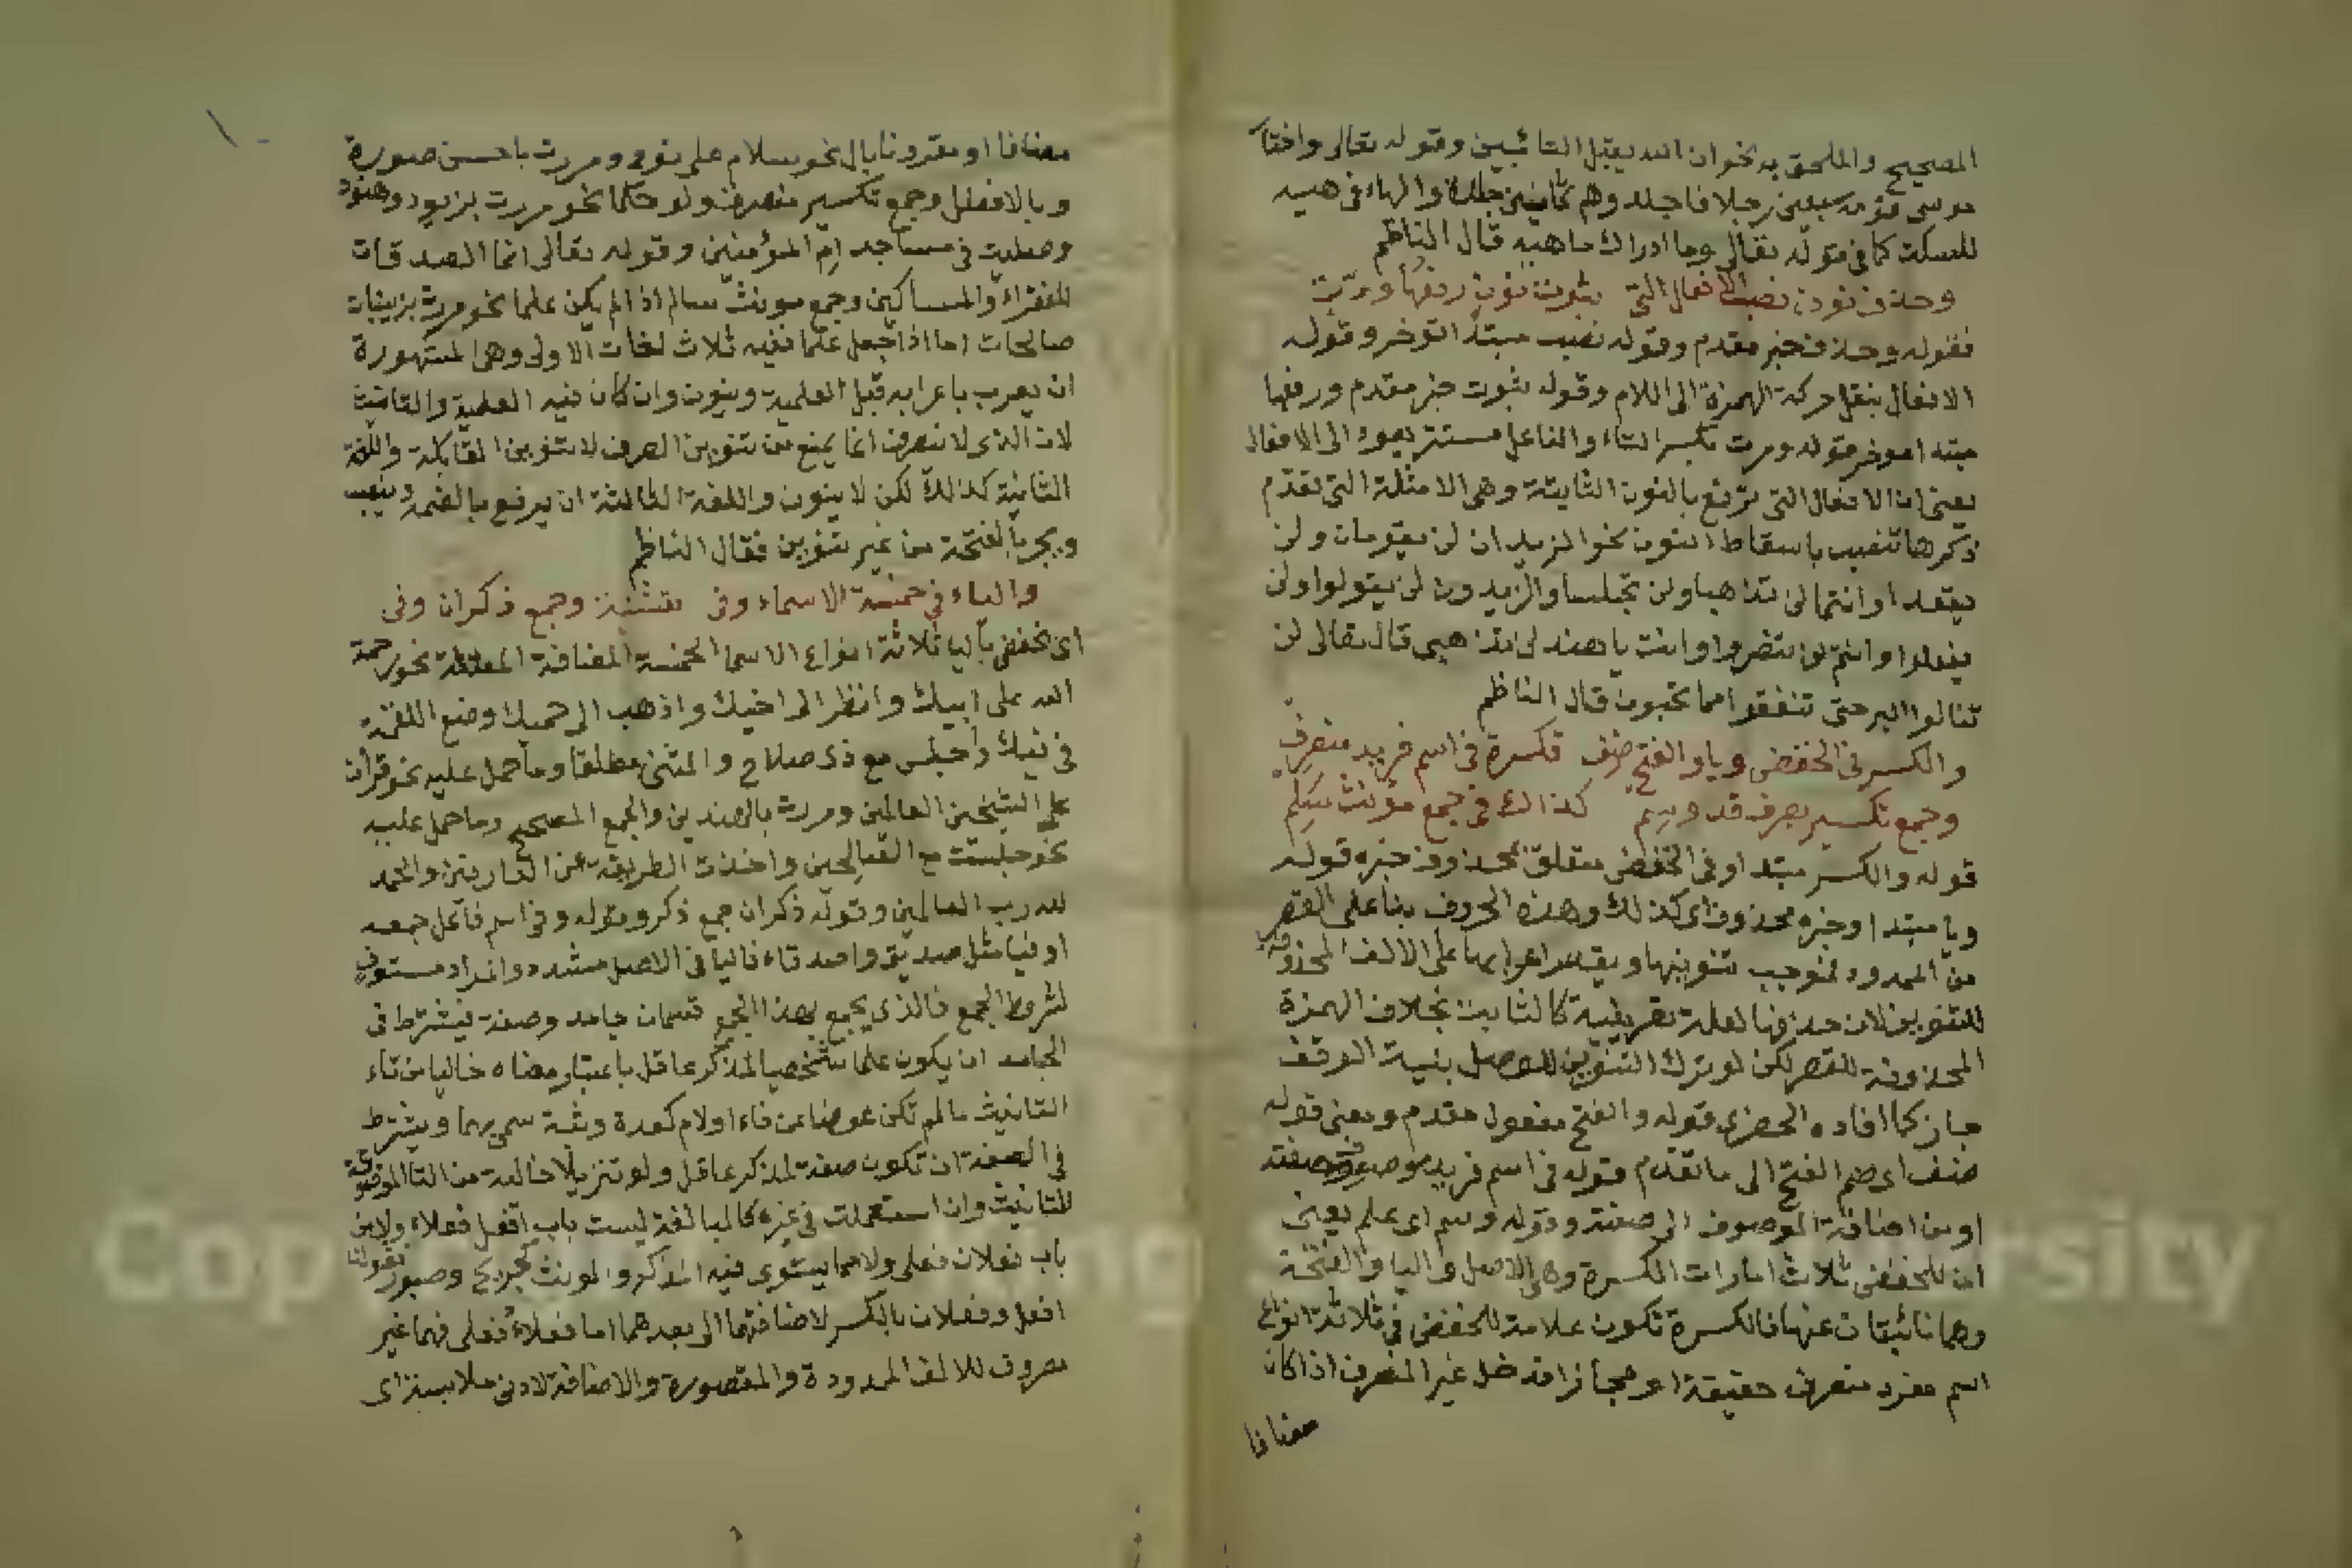 الصحيح والملحق به نحو ان الله يقبل التائبين وقوله تعالى واختار
موسى قومه سبعين رجلا فاجلدوهم ثمانين جلدة والهاء في هيه
للسكت كما في قوله تعالى وما ادراك ما هيه قال الناظم
وحذف نون نصب الافعال التي بثبوت نون رفعها
فقوله وحذف خبر مقدم وقوله نصب مبتدأ مؤخر وقوله
الافعال بنقل حركة الهمزة الى اللام وقوله بثبوت خبر مقدم ورفعها
مبتدا موخر قوله ومرت بكسر التاء والفاعل مستتر يعود الى الافعال
يعنى ان الافعال التي ترفع بالنون الثابتة وهى الامثلة التي تقدم
ذكرها تنصب باسقاط النون نحو الزيدان لن يقومان ولن
يقعدا وانتما لن تذهبا ولن تجلسا والزيدون لن يقولوا ولن
يفعلوا وانتم لن تنصروا وانت يا هند لن تذهبي قال تعالى لن
تنالوا البر حتى تنفقوا مما تحبون قال الناظم
والكسر في الخفض ويا والفتح ضف فكسرة في اسم فريد منصرف
وجمع تكسير بصرف قد وسم كذاك في جمع مؤنث سلم
قوله والكسر مبتدا وفي الخفض متعلق بمحذوف خبره قوله
ويا مبتدا وخبره محذوف اى كذلك وهذه الحروف بنا على القصر
من الممدود فنوجب تنوينها ويقدر اعرابها على الالف المحذوفة
للتنوين لان حذفها لعلة تصريفية كالثابت بخلاف الهمزة
المحذوفة للقصر لكن لو ترك التنوين للوصل بنية الوقف
جاز كما افاده الخضري قوله والفتح مفعول مقدم ومعنى قوله
ضف اى ضم الفتح الى ما تقدم قوله في اسم فريد موصوف وصفته
او من اضافة الموصوف الى صفته وقوله وسم اى علم يعنى
ان للخفض ثلاث امارات الكسرة وهى الاصل واليا والفتحة
وهما نائبتان عنها فالكسرة تكون علامة للخفض في ثلاثة انواع
اسم مفرد منصرف حقيقة او مجازا فدخل غير المنصرف اذا كان
مضافا
مضافا او مقرونا بال نحو سلام على نوح ومررت باحسن صورة
وبالافضل وجمع تكسير منصرف ولو حكما نحو مررت بزيود وهنود
وصليت في مساجد ام المؤمنين وقوله تعالى انما الصدقات
للفقراء والمساكين وجمع مونث سالم اذا لم يكن علما نحو مررت بزينبات
صالحات اما اذا جعل علما ففيه ثلاث لغات الاولى وهى المشهورة
ان يعرب باعرابه قبل العلمية وينون وان كان فيه العلمية والتانيث
لان الذى لا ينصرف انما يمنع من تنوين الصرف لا تنوين المقابلة واللغة
الثانية كذلك لكن لا ينون واللغة الثالثة ان يرفع بالضمة وينصب
ويجر بالفتحة من غير تنوين فقال الناظم
والياء في خمسة الاسماء وفي تثنية وجمع ذكران وفى
اى تخفض باليا ثلاثة انواع الاسما الخمسة المضافة المعتلة نحو رحمة
الله على ابيك وانظر الى اخيك واذهب الى حميك وضع اللقمة
في فيك واجلس مع ذى صلاح والمثنى مطلقا وما حمل عليه نحو قرأت
على الشيخين العالمين ومررت بالهندين والجمع الصحيح وما حمل عليه
نحو جلست مع الصالحين واخذت الطريقة عن العارفين والحمد
لله رب العالمين وقوله ذكران جمع ذكر وقوله وفي اسم فاعل جمعه
او فيا مثل صديق واصدقاء فاليا في الاصل مشدد والمراد مستوف
لشروط الجمع فالذى يجمع بهذا الجمع قسمان جامد وصفة فيشترط في
الجامد ان يكون علما شخصيا لمذكر عاقل باعتبار معناه خاليا من تاء
التانيث مالم تكن عوضا عن فاء او لام كعدة وثبة سمى بهما ويشترط
في الصفة ان تكون صفة لمذكر عاقل ولو تنزيلا خالية من التا الموضوعة
للتانيث وان استعملت في غيره كالمبالغة ليست باب افعل فعلاء ولا من
باب فعلان فعلى ولا مما يستوى فيه المذكر والمونث كجريح وصبور فقولنا
افعل وفعلان بالكسر لاضافتهما الى بعدهما اما فعلاء وفعلى فهما غير
مصروف للالف الممدودة والمقصورة والاضافة لادنى ملابسة اى